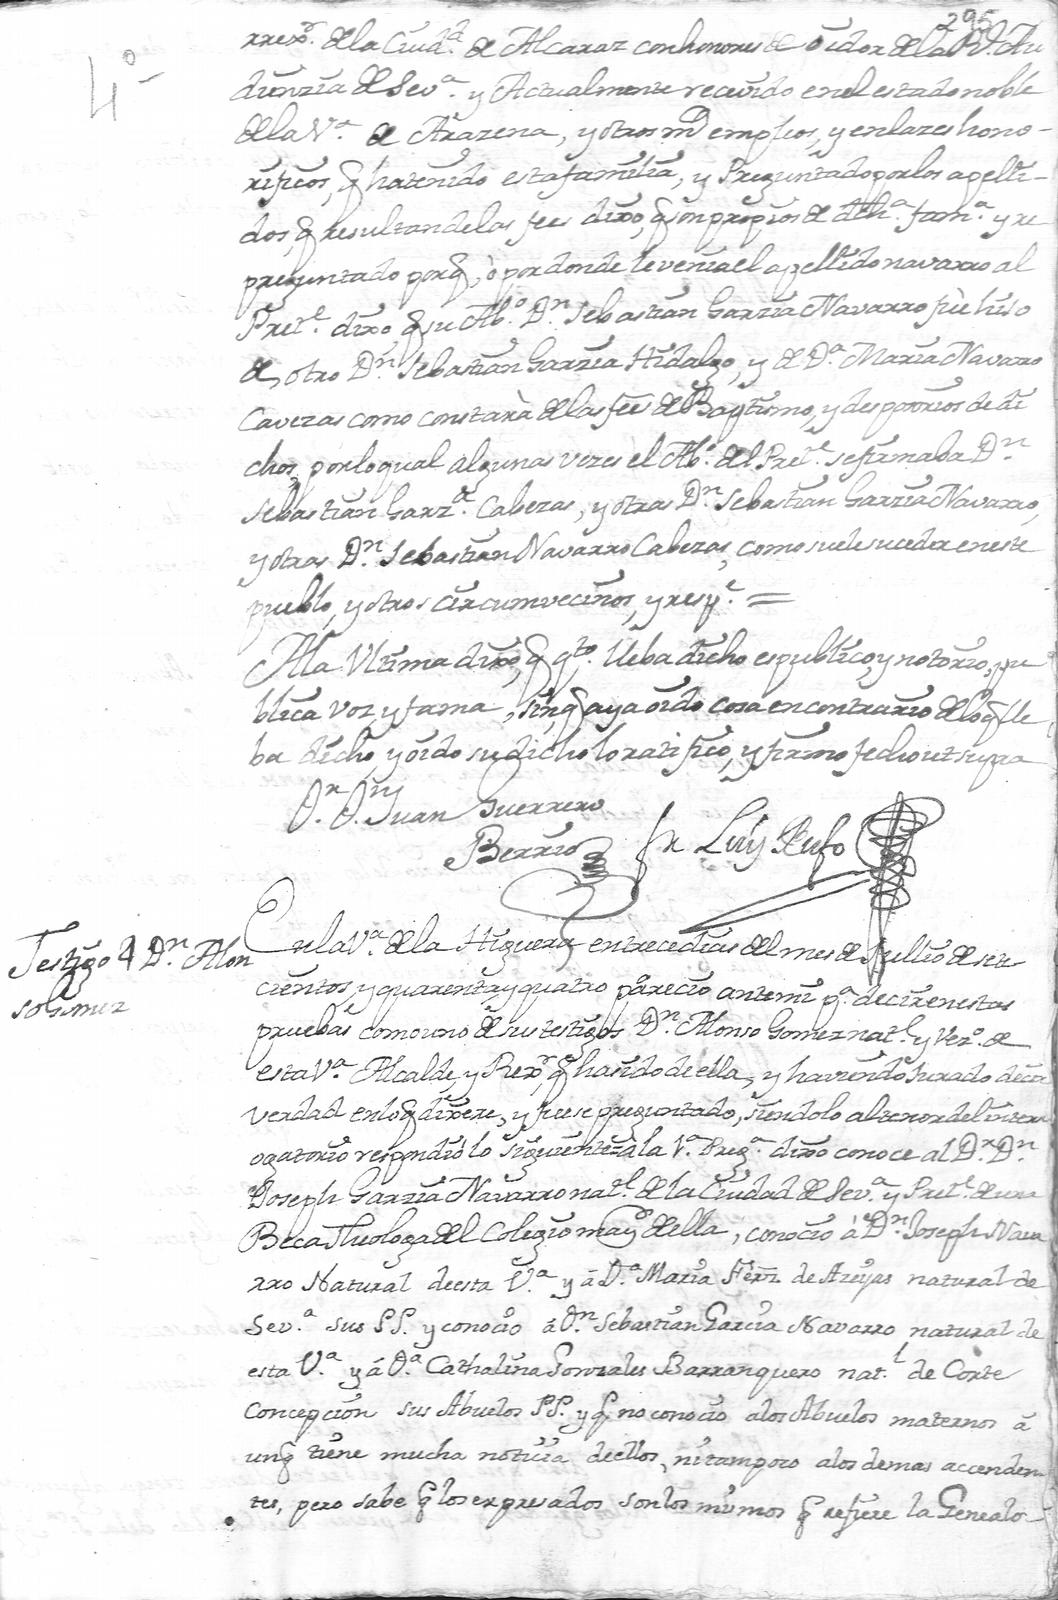 295
4°
rrexr. de la Ciud.d de Alcaraz con honores de Oidor de la Rl. Au
diënzia de Sev.a y Actualmente recevido en el estado noble
de la V.a de Arazena, y otros md empleos, y enlazes hono-
rificos, q ha tenido esta familia, y Preguntado por los apelli-
dos, q resultan de las fees dixo, q son propios de dcha. fam.a y re
preguntado porq, ò por donde le venia el apellido navarro al
Pret.e dixo q su Ab.o Dn Sebastian Garzia Navarro fuè hijo
de otro Dn Sebastian Garzia Hidalgo, y de D.a Maria Navarro
Cavezas como constarà de las fees de Baptismo, y desposorios de di
chos, por lo qual algunas vezes el Ab.o del Pret.e se firmaba Dn
Sebastian Garz.a Cabezas, y otras Dn Sebastian Garzia Navarro,
y otras Dn Sebastian Navarro Cabezas, como suele suceder en este
pueblo, y otros circumvecinos, y resp.e =
A la Ultima dixo, q q.to lleba dicho es publico, y notorio, pu
blica voz, y fama, sin q aya oido cosa en contrario de lo q lle
ba dicho, y oido su dicho lo ratifico, y firmo fecho ut supra
Dr. Dn. Juan Guerrero
Berrio Fr Luis Rufo
Testigo 4 Dn Alon
so Gomez
En la V.a de la Higuera en trece dias del mes de Jullio de sete
cientos y quarenta y quatro parecio ante mi p.a decir en estas
pruebas como uno de sus testigos Dn Alonso Gomez nat.l y vez.o de
esta V.a Alcalde, y Rexr, q ha sido de ella, y haviendo Jurado decir
verdad en lo q dixere, y fuese preguntado, siendolo al tenor del inter
ogatorio respondio lo siguiente à la V.a Preg.a dixo conoce al Dr. Dn
Joseph Garzia Navarro nat.l de la Ciudad de Sev.a y Pret.e de una
Beca Theologa del Colegio mayr della, conocio à Dn Joseph Nava
rro Natural de esta V.a y á D.a Maria Ferrz de Azeyas natural de
Sev.a sus PP. y conocio á Dn Sebastian Garcia Navarro natural de
esta V.a y á D.a Cathalina Gonzales Barranquero nat.l de Corte
Concepcion sus Abuelos PP. y q no conocio a los Abuelos maternos á
unq tiene mucha noticia de ellos, ni tampoco a los demas accenden
tes, pero sabe q los expresados son los mismos q refiere la Genealo